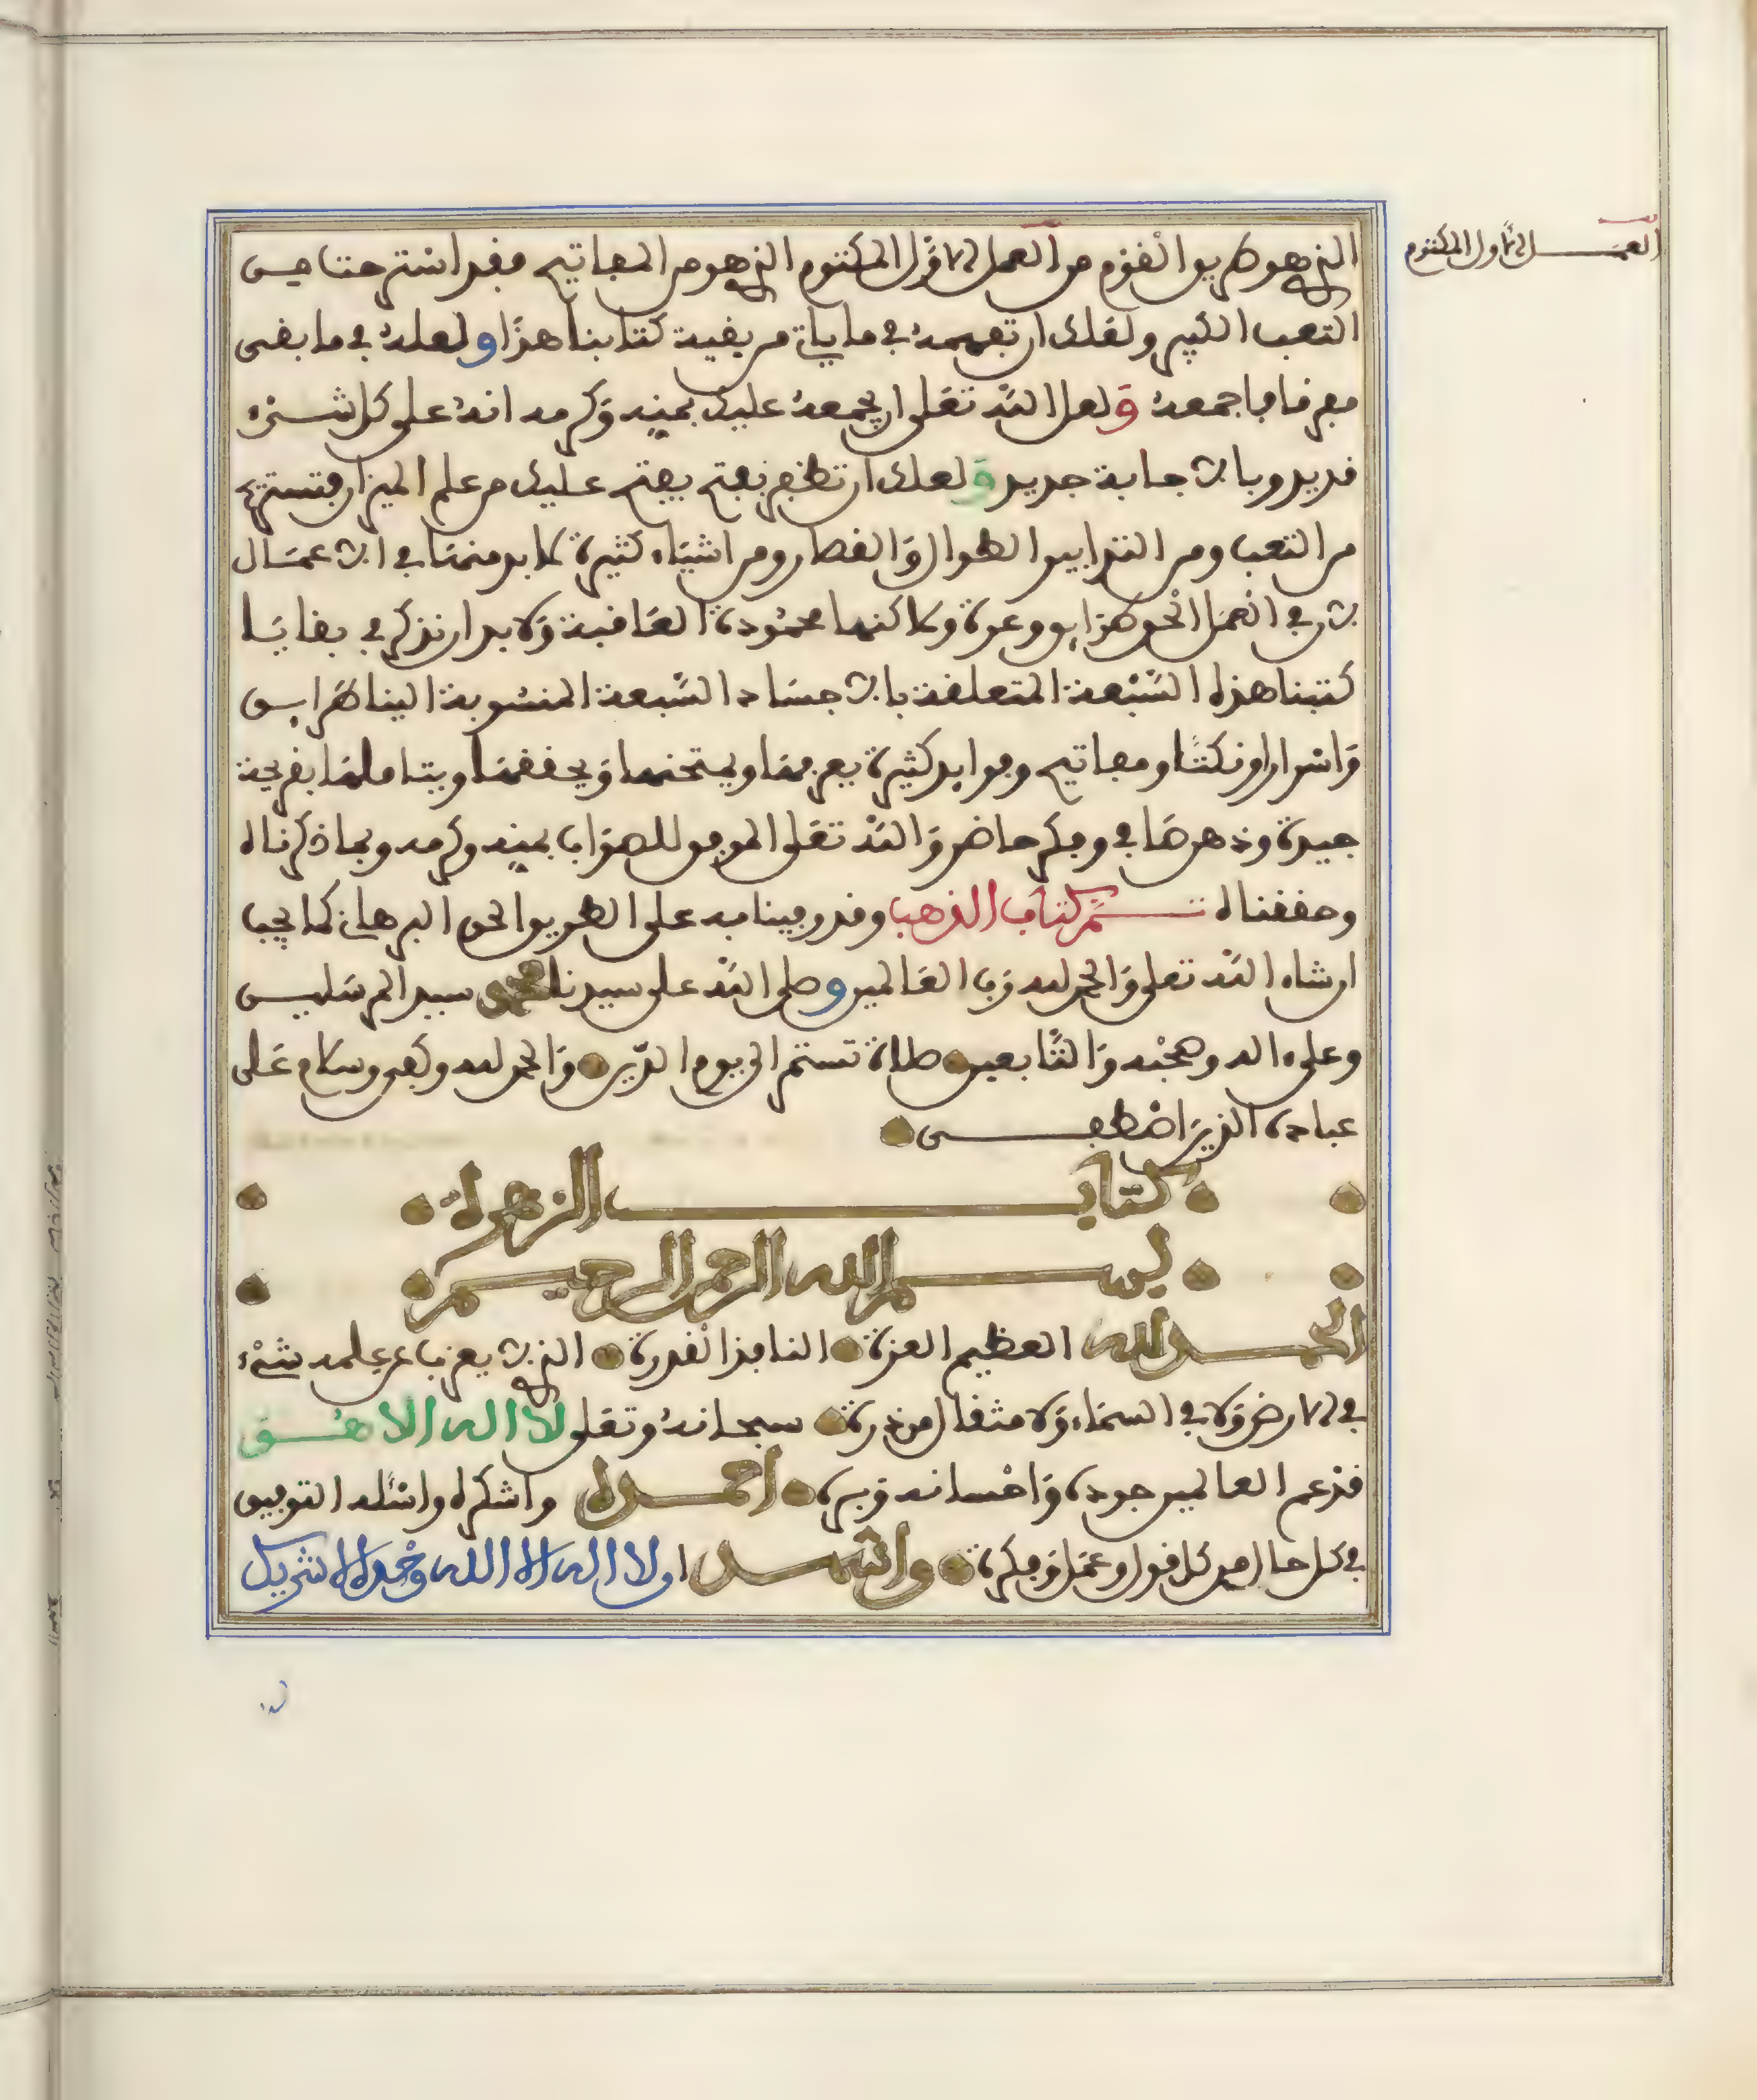 العمل الأول المكتوم
الذي هو طريق القوم من العمل الأول المكتوم الذي هو من المفاتيح فقد استرحنا من
التعب الكثير ولعلك ان تفهمه في ما ياتي من بقية كتابنا هذا ولعله في ما بقى
مفرقا فاجمعه ولعل الله تعلى ان يجمعه عليك بمنه وكرمه انه على كل شىء
قدير وبالاجابة جدير ولعلك ان تظفر بفتح يفتح عليك من علم الميزان فتستريح
من التعب ومن التدابير الطوال والقصار ومن اشياء كثيرة لا بد منها في الاعمال
لان في العمل الحق طرايق وعرة ولاكنها محمودة العاقبة ولا بد ان نذكر في بقايا
كتبنا هذه السبعة المتعلقة بالاجساد السبعة المنسوبة الينا طرايق
واسرارا ونكتا ومفاتيح وفوايد كثيرة يعرفها ويمتحنها ويحققها ويتاملها بقريحة
جيدة وذهن صافي وفكر حاضر والله تعلى الموفق للصواب بمنه وكرمه وبما ذكرناه
وحققناه تم كتاب الذهب وقد وفينا به على الطريق الحق البرهاني كما يجب
ان شاء الله تعلى والحمد لله رب العالمين وصلى الله على سيدنا محمد سيد المرسلين
وعلى ءاله وصحبه والتابعين صلاة تستمر الى يوم الدين والحمد لله وكفى وسلام على
عباده الذين اصطفى
كتاب الزهرة
بسم الله الرحمن الرحيم
الحمد لله العظيم العزة النافذ القدرة الذي لا يعزب عن علمه شىء
في الارض ولا في السماء ولا مثقال من ذرة سبحانه وتعلى لا اله الا هو
قد عم العالمين جوده واحسانه وبره احمده واشكره واسئله التوفيق
في كل حال من كل قول وعمل وفكرة واشهد ان لا اله الا الله وحده لا شريك